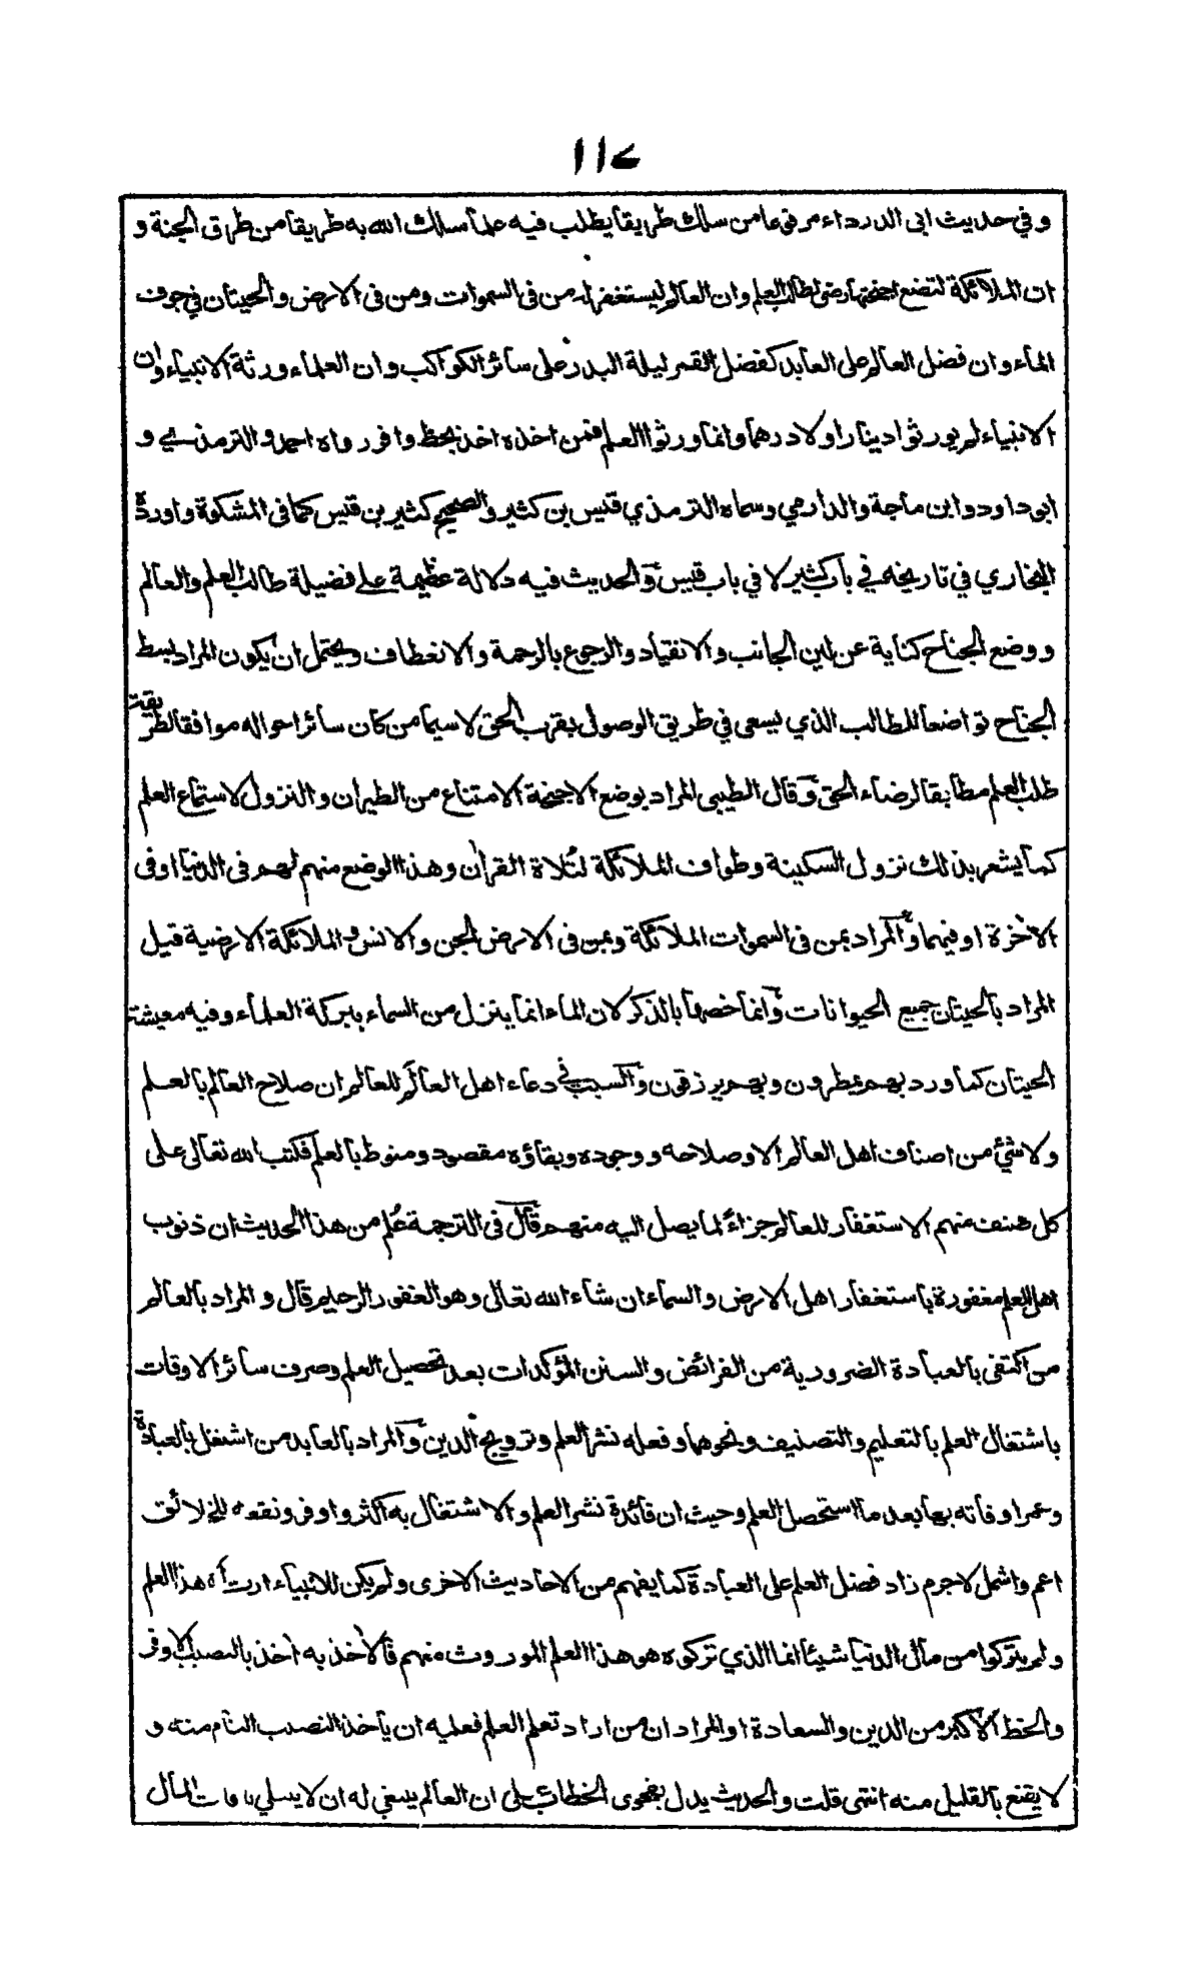 ١١٤
وفي حديث ابي الدرداء مرفوعا من سلك طريقا يطلب فيه علما سلك الله به طريقا من طرق الجنة و
ان الملائكة لتضع اجنحتها رضى لطالب العلم وان العالم ليستغفر له من في السموات ومن في الارض والحيتان في جوف
الماء وان فضل العالم على العابد كفضل القمر ليلة البدر على سائر الكواكب وان العلماء ورثة الانبياء وان
الانبياء لم يورثوا دينارا ولا درهما وانما ورثوا العلم فمن اخذه اخذ بحظ وافر رواه احمد والترمذي و
ابو داود وابن ماجة والدارمي وسماه الترمذي قيس بن كثير والصحيح كثير بن قيس كما في المشكوة واورده
البخاري في تاريخه في باب كثير لا في باب قيس والحديث فيه دلالة عظيمة على فضيلة طالب العلم والعالم
ووضع الجناح كناية عن لين الجانب والانقياد والرجوع بالرحمة والانعطاف ويحتمل ان يكون المراد بسط
الجناح تواضعا للطالب الذي يسعى في طريق الوصول بقرب الحق لا سيما من كان سائر احواله موافقا لطريقة
طلب العلم مطابقا لرضاء الحق وقال الطيبي المراد بوضع الاجنحة الامتناع من الطيران والنزول لاستماع العلم
كما يشعر بذلك نزول السكينة وطواف الملائكة لتلاة القرآن وهذا الوضع منهم لهم في الدنيا او في
الآخرة او فيهما والمراد بمن في السموات الملائكة وبمن في الارض الجن والانس والملائكة الارضية قيل
المراد بالحيتان جميع الحيوانات وانما خصها بالذكر لان الماء انما ينزل من السماء ببركة العلماء وفيه معيشة
الحيتان كما ورد بهم يمطرون وبهم يرزقون والسبب في دعاء اهل العالم للعالم ان صلاح العالم بالعلم
ولا شئ من اصناف اهل العالم الا وصلاحه ووجوده وبقاؤه مقصود ومنوط بالعلم فكتب الله تعالى على
كل صنف منهم الاستغفار للعالم جزاءً لما يصل اليه منهم قال في الترجمة عُلم من هذا الحديث ان ذنوب
اهل العلم مغفورة باستغفار اهل الارض والسماء ان شاء الله تعالى وهو الغفور الرحيم قال والمراد بالعالم
من اكتفى بالعبادة الضرورية من الفرائض والسنن المؤكدات بعد تحصيل العلم وصرف سائر الاوقات
باشتغال العلم بالتعليم والتصنيف ونحوهما وفعله نشر العلم وترويج الدين والمراد بالعابد من اشتغل بالعبادة
وعمر اوقاته بها بعد ما استحصل العلم وحيث ان فائدة نشر العلم والاشتغال به اكثر واوفر ونفعه للخلائق
اعم واشمل لا جرم زاد فضل العلم على العبادة كما يفهم من الاحاديث الاخرى ولم يكن للانبياء ارث الا هذا العلم
ولم يتركوا من مال الدنيا شيئا انما الذي تركوه هو هذا العلم الموروث منهم فالآخذ به آخذ بالنصيب الاوفر
والحظ الاكبر من الدين والسعادة او المراد ان من اراد تعلم العلم فعليه ان يأخذ النصيب التام منه و
لا يقنع بالقليل منه انتهى قلت والحديث يدل بفحوى الخطاب على ان العالم ينبغي له ان لا يبالي بما فات المال